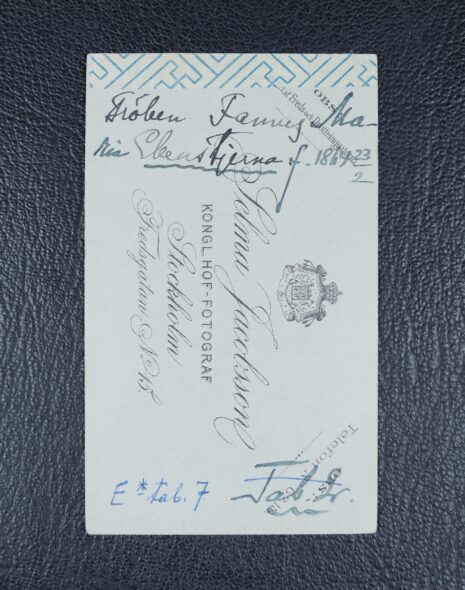 Fröben Fanny Ma-
ria Ehrenstjerna f. 1869 23/2
OBS.
Selma Jacobsson
KONGL. HOF-FOTOGRAF
Stockholm
Fredsgatan No. 15.
Telefon
OBS.
E* tab. 7
Tab. Gr.